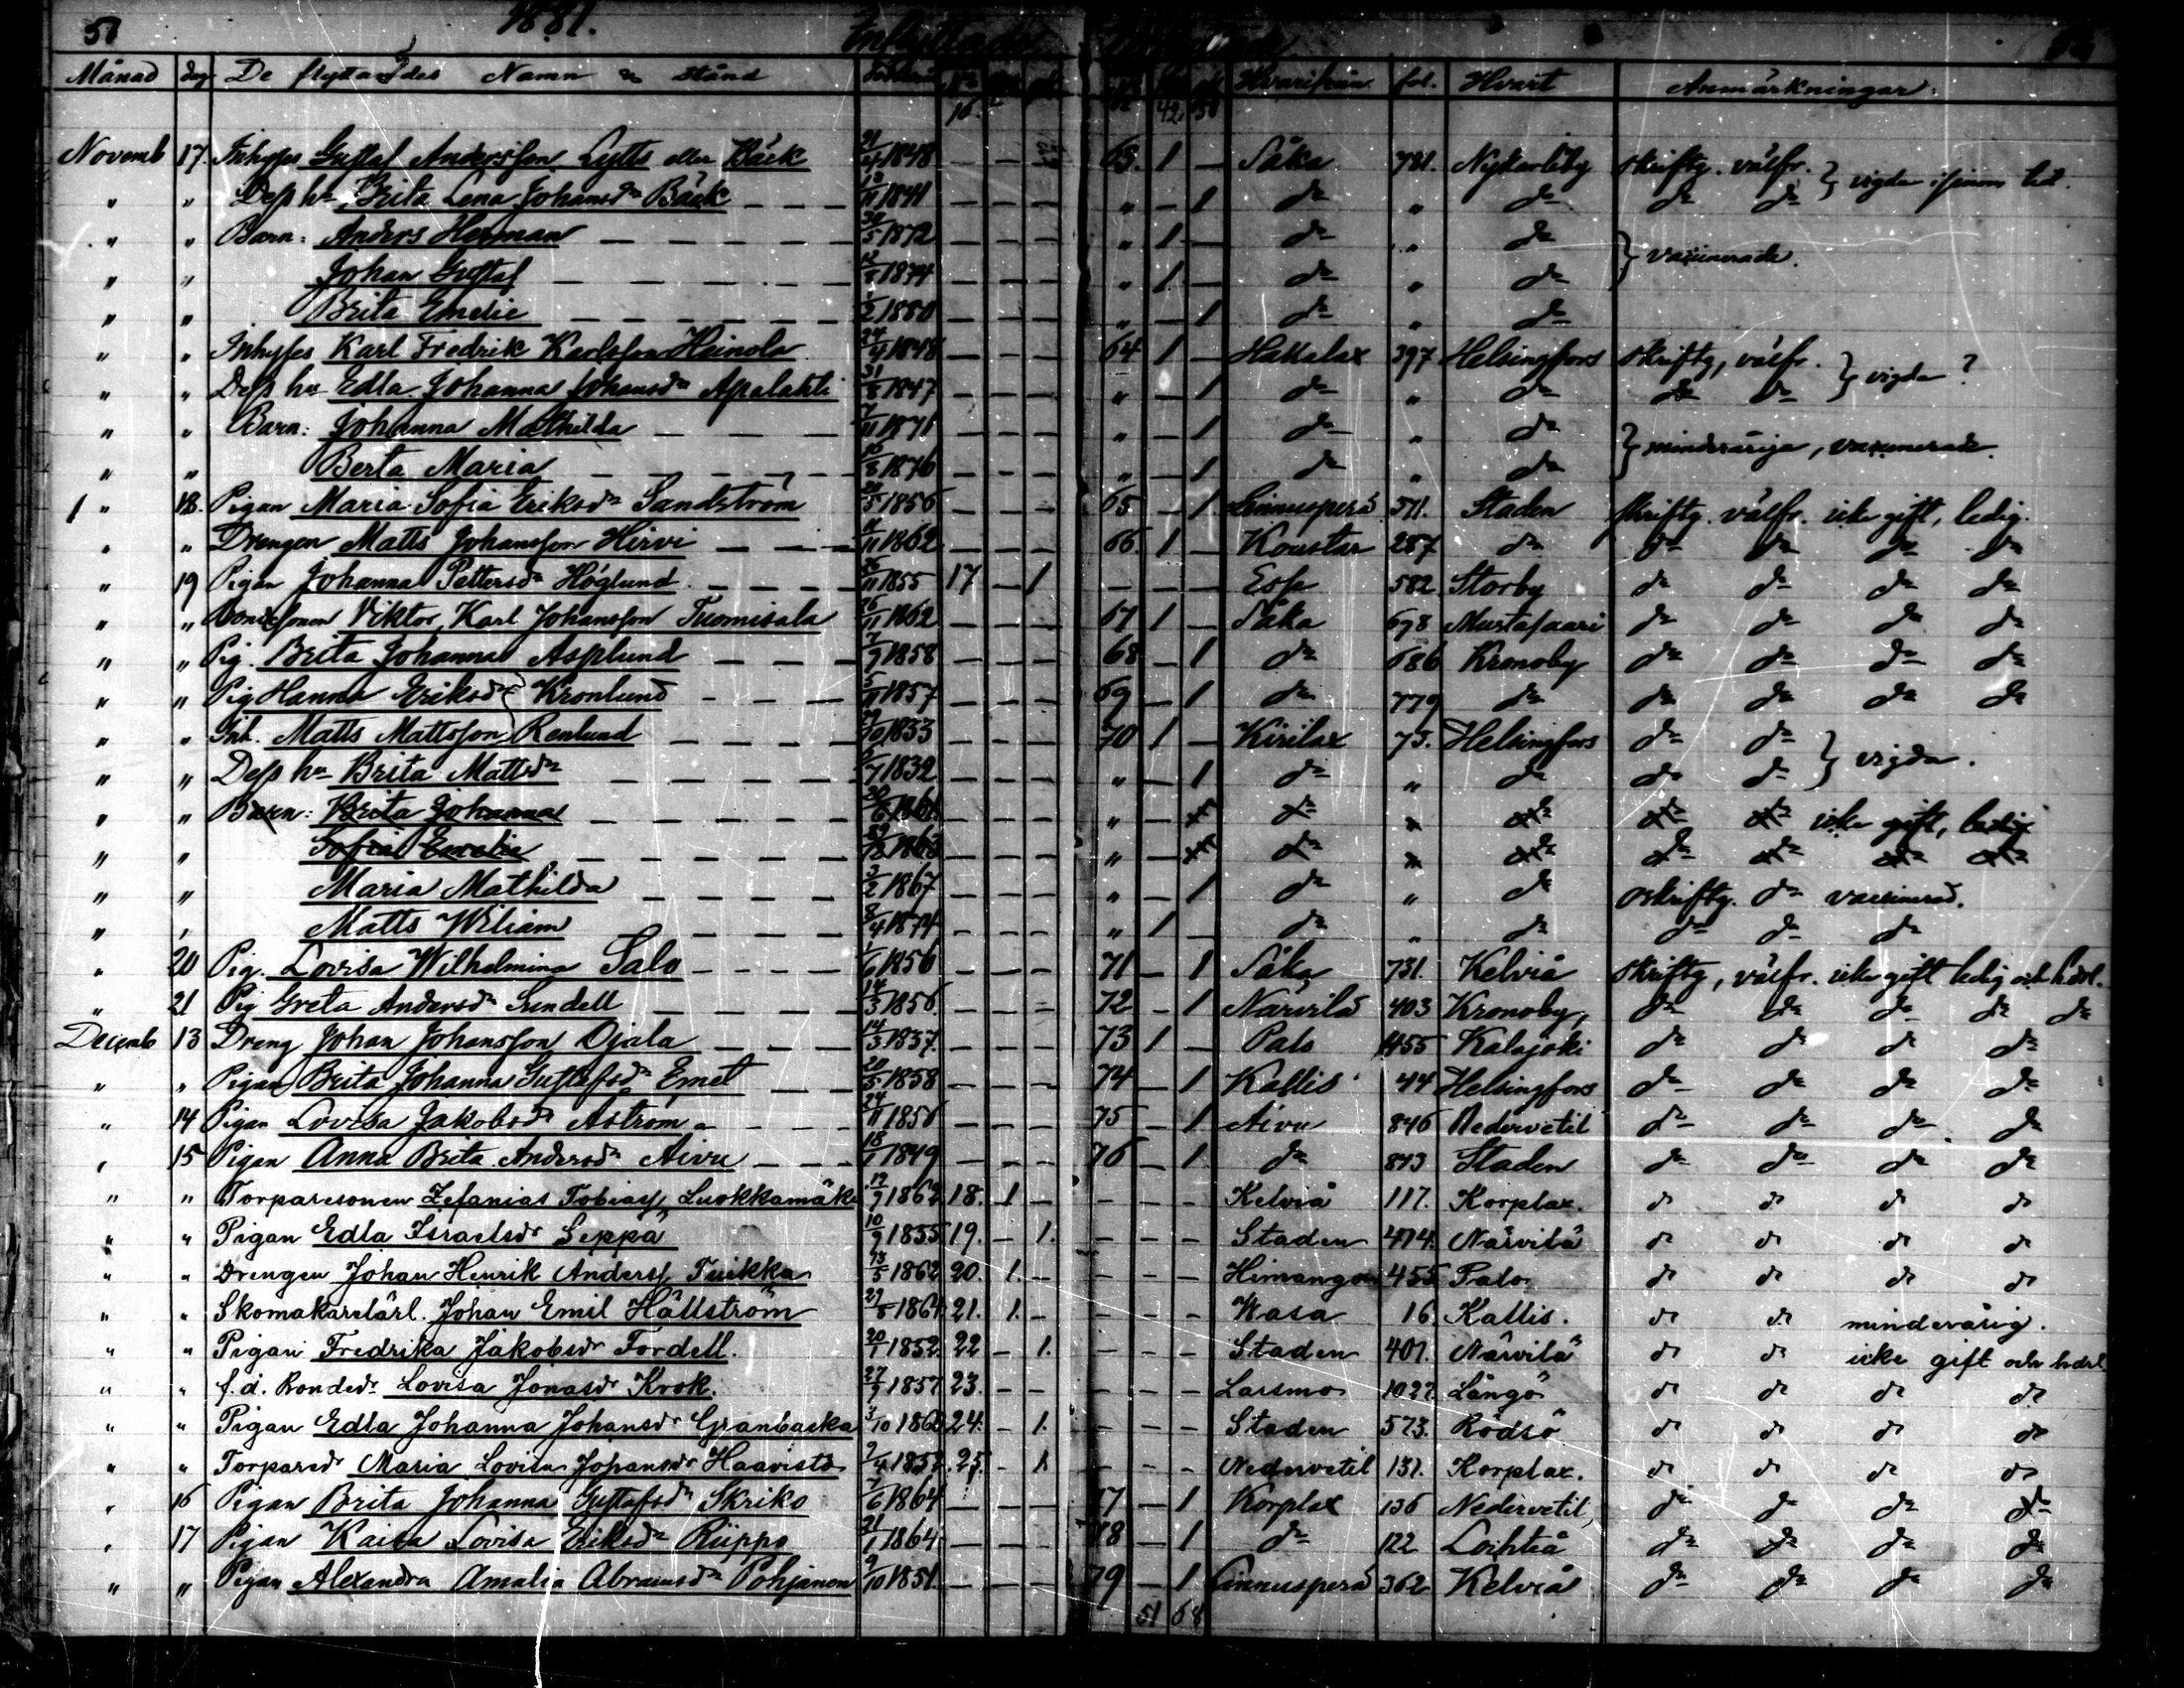 51 1881. Inflyttade
Månad dag De flyttandes Namn & stånd No Hvarifrån fol. Hvart Anmärkningar.
16. 42. 50
Novemb 17. Inhyses Gustaf Andersson Lytts eller Bäck 1848 — — 63. 1 — Såka 781. Nykarleby skriftg. välfr. } vigde
" " Dess hu Brita Lena Johansdr Bäck 1841 — — — " — 1 do " do do do
" " Barn: Anders Herman 30/5 1872 — — — " 1 — do " do } vaxinerade.
" " Johan Gustaf 1874 — — — " 1 — do " do
" " Brita Emelie 1/2 1880 — — — " — 1 do " do
" " Inhyses Karl Fredrik Karlsson Heinola 24/4 1848 — — — 64 1 — Hakalax 397 Helsingfors skriftg, välfr. } vigda ?
" " Dess hu Edla Johanna Johansdr Apalahti 31/8 1847 — — — " — 1 do " do do do
" " Barn: Johanna Mathilda 7/11 1871 — — — " — 1 do " do } minderåriga, vaxinerade.
" " Berta Maria 1876 — — — " — 1 do " do
" 18. Pigan Maria Sofia Eriksdr Sandström 1856 — — — 65 — 1 Linnusperä 511. Staden skriftg. välfr. icke gift, ledig.
" " Drengen Matts Johansson Hirvi 1862 — — — 66 1 — Koustar 287 do do do do do
" 19 Pigan Johanna Pettersdr Höglund 1855 17 — 1 — — — Esse 582 Storby do do do do
" " Bondesonen Viktor, Karl Johansson Tuomisala 26/11 1862 — — — 67 1 — Såka 698 Mustasaari do do do do
" " Pig. Brita Johanna Asplund 7/9 1858 — — — 68 — 1 do 686 Kronoby do do do do
" " Pig Hanna Eriksdr Kronlund 5/11 1857 — — — 69 — 1 do 779 do do do do do
" " Inh. Matts Mattsson Renlund 29/10 1833 — — — 70 1 — Kirilax 75. Helsingfors do do } vigda.
" " Dess hu Brita Mattsdr 1832 — — — " — 1 do " do do do
" " Barn: Brita Johanna — — — " — do " do do do icke gift, ledig
" " Sofia Emelie — — — " — do " do do do do do
" " Maria Mathilda 3/2 1867 — — — " — 1 do " do oskriftg. do vaxinerad.
" " Matts Wiliam 8/4 1874 — — — " 1 — do " do do do do
" 20 Pig. Lovisa Wilhelmina Salo 1/6 1856 — — — 71 — 1 Såka 731. Kelviå skriftg, välfr. icke gift ledig och hdrl.
" 21 Pig Greta Andersdr Sundell 14/3 1856 — — — 72 — 1 Närvilä 403 Kronoby, do do do do do
Decemb 13 Dreng Johan Johansson Ojala 14/3 1837. — — — 73 1 — Palo 455 Kalajoki do do do do
" " Pigan Brita Johanna Gustafsdr Emet 20/5 1858 — — — 74 — 1 Kallis 44 Helsingfors do do do do
" 14 Pigan Lovisa Jakobsdr Åström 24/11 1856 — — — 75 — 1 Aivu 846 Nedervetil do do do do
" 15 Pigan Anna Brita Andersdr Aivu 18/1 1849 — — — 76 — 1 do 843 Staden do do do do
" " Torparesonen Zefanias Tobiass. Luokkamäki 12/9 1862 18. 1 — — — — Kelviå 117. Korplax. do do do do
" " Pigan Edla Israelsdr Seppä 10/9 1855 19. — 1. — — — Staden 414. Närvilä do do do do
" " Drengen Johan Henrik Anderss. Tuikka 13/5 1862 20. 1. — — — — Himango 455 Palo do do do do
" " Skomakarelärl. Johan Emil Hällström 29/8 1864 21. 1. — — — — Wasa 16. Kallis. do do minderårig.
" " Pigan Fredrika Jakobsdr Fordell. 20/1 1852 22 — 1. — — — Staden 401. Närvilä do do icke gift och hdrl
" " f.d. Bondedr Lovisa Jonasdr Krok. 1857 23. — — — — — Larsmo 1027. Långö do do do do
" " Pigan Edla Johanna Johansdr Granbacka 3/10 186 24. — 1. — — — Staden 573. Rödsö do do do do
" " Torparedr Maria Lovisa Johansdr Haavisto 2/4 185 25. — 1. — — — Nedervetil 131. Korplax. do do do do
" 16 Pigan Brita Johanna Gustafsdr Skriko 7/6 1864 — — — 77 — 1 Korplax 136 Nedervetil, do do do do
" 17 Pigan Kaisa Lovisa Eriksdr Riippo 21/1 1864 — — — 78 — 1 do 122 Lochteå do do do do
" " Pigan Alexandra Amalia Abramsdr Pohjanen 9/10 1851. — — — 79 — 1 Linnusperä 362 Kelviå do do do do
51 68